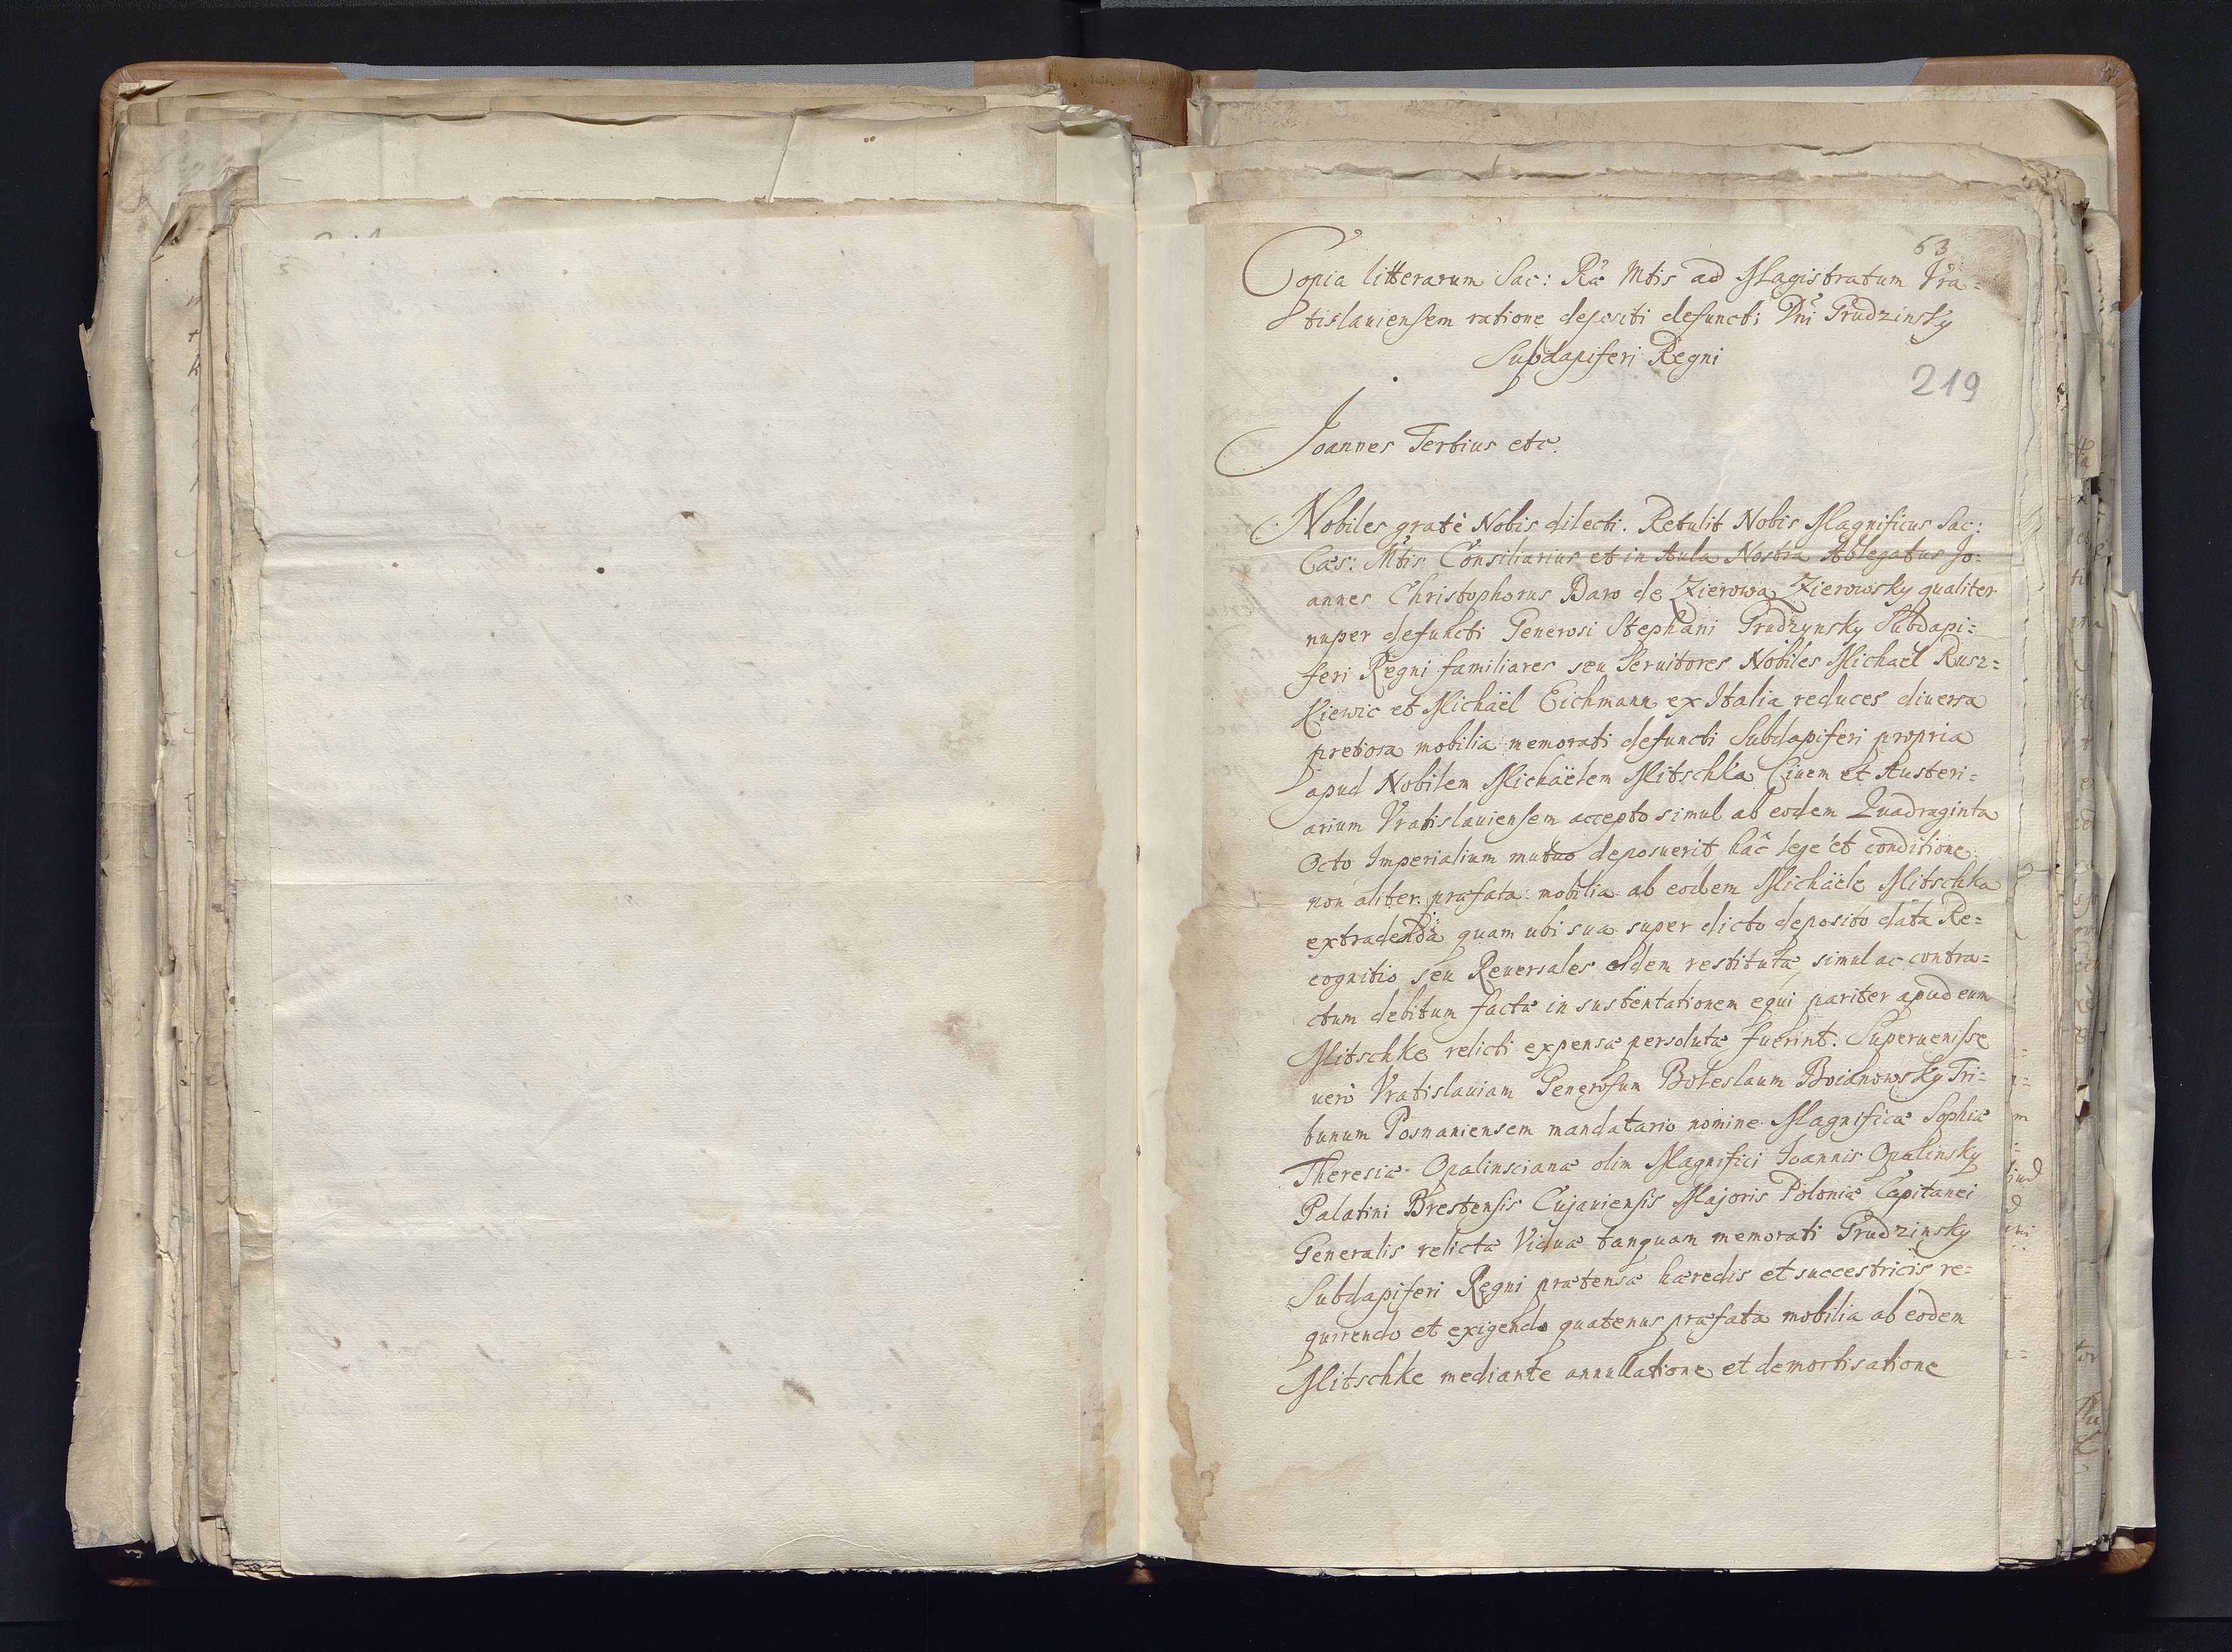 63
Copia litterarum Sac: Ræ Mtis ad Magistratum Vra-
tislauiensem ratione depositi defuncti Dni Grudzinsky
Subdapiferi Regni
219
Joannes Tertius etc.
Nobiles gratè Nobis dilecti. Retulit Nobis Magnificus Sac:
Cæs: Mtis Consiliarius et in Aula Nostra Ablegatus Jo-
annes Christophorus Baro de Zierowa Zierowsky qualiter
nuper defuncti Generosi Stephani Grudzynsky Subdapi=
feri Regni familiares seu Seruitores Nobiles Michaël Rusz=
Kiewic et Michaël Eichmann ex Italia reduces diuersa
pretiosa mobilia memorati defuncti Subdapiferi propria
apud Nobilem Michaëlem Mitschka Ciuem et Austeri=
arium Vratislauiensem accepto simul ab eodem Quadraginta
Octo Imperialium mutuo deposuerit hâc lege et conditione
non aliter præfata mobilia ab eodem Michäele Mitschka
extradenda quam ubi sua super dicto deposito data Re=
cognitio seu Reuersales eidem restitutæ, simul ac contra=
ctum debitum factæ in sustentationem equi pariter apud eum
Mitschke relicti expensæ persolutæ fuerint. Superuenisse
uerò Vratislauiam Generosum Boleslaum Boianowsky Tri=
bunum Posnaniensem mandatario nomine Magnificæ Sophiæ
Theresiæ Opalinscianæ olim Magnifici Joannis Opalinsky
Palatini Brestensis Cujauiensis Majoris Poloniæ Capitanei
Generalis relictæ Viduæ tanquam memorati Grudzinsky
Subdapiferi Regni prætensæ hæredis et successtricis re=
quirendo et exigendo quatenus præfata mobilia ab eodem
Mitschke mediante annullatione et demortisatione